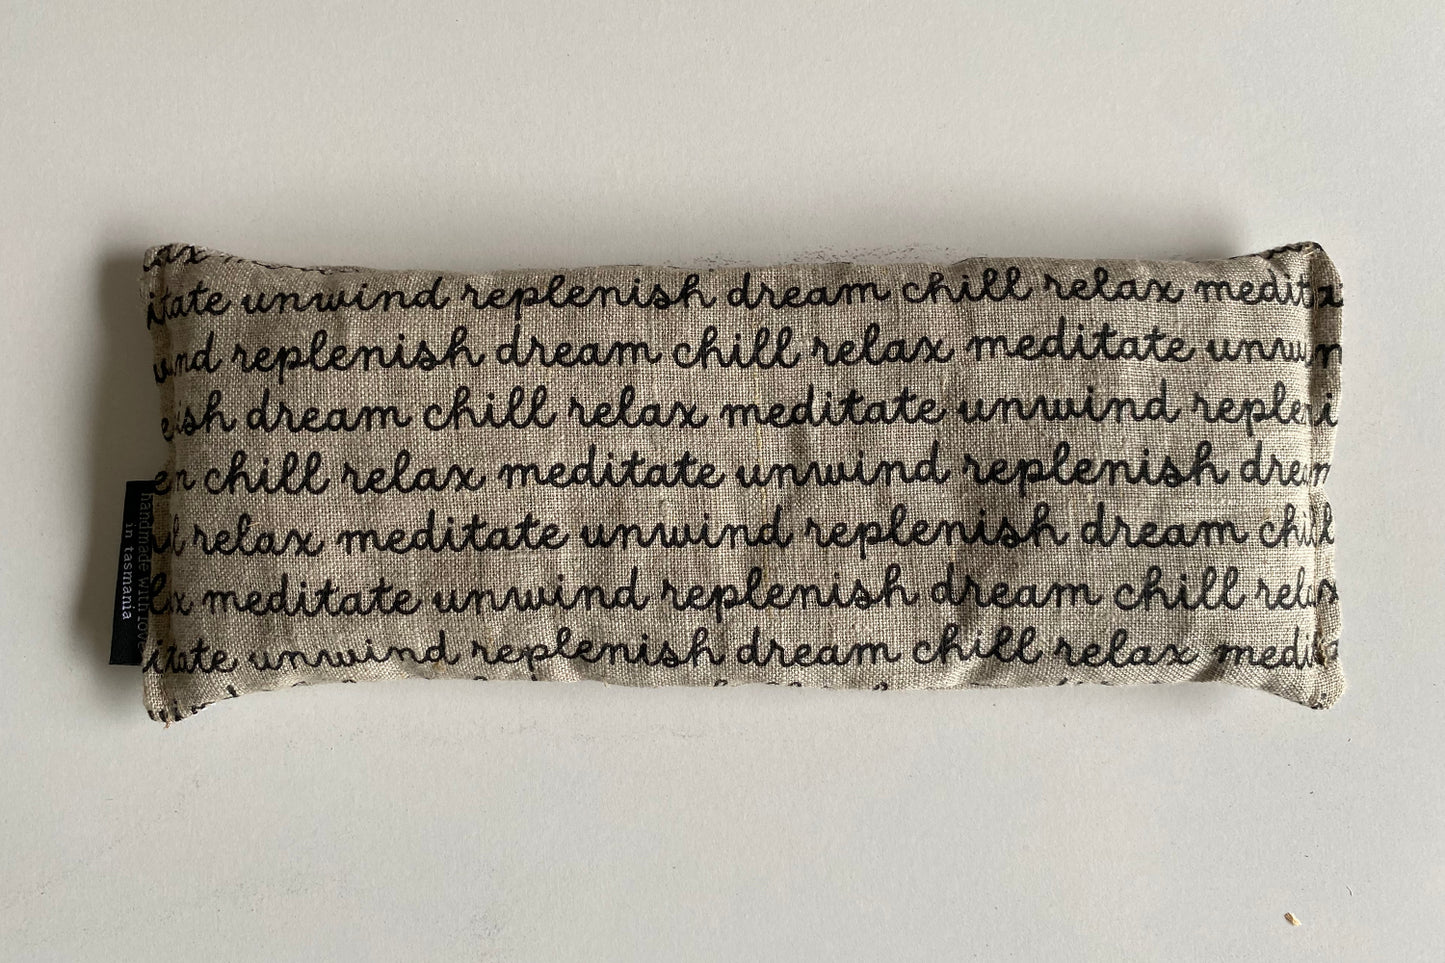 lax
itate unwind replenish dream chill relax medit
nd replenish dream chill relax meditate unwi
ish dream chill relax meditate unwind replen
chill relax meditate unwind replenish dream
l relax meditate unwind replenish dream chill
lax meditate unwind replenish dream chill relax
itate unwind replenish dream chill relax medi
handmade with love
in tasmania